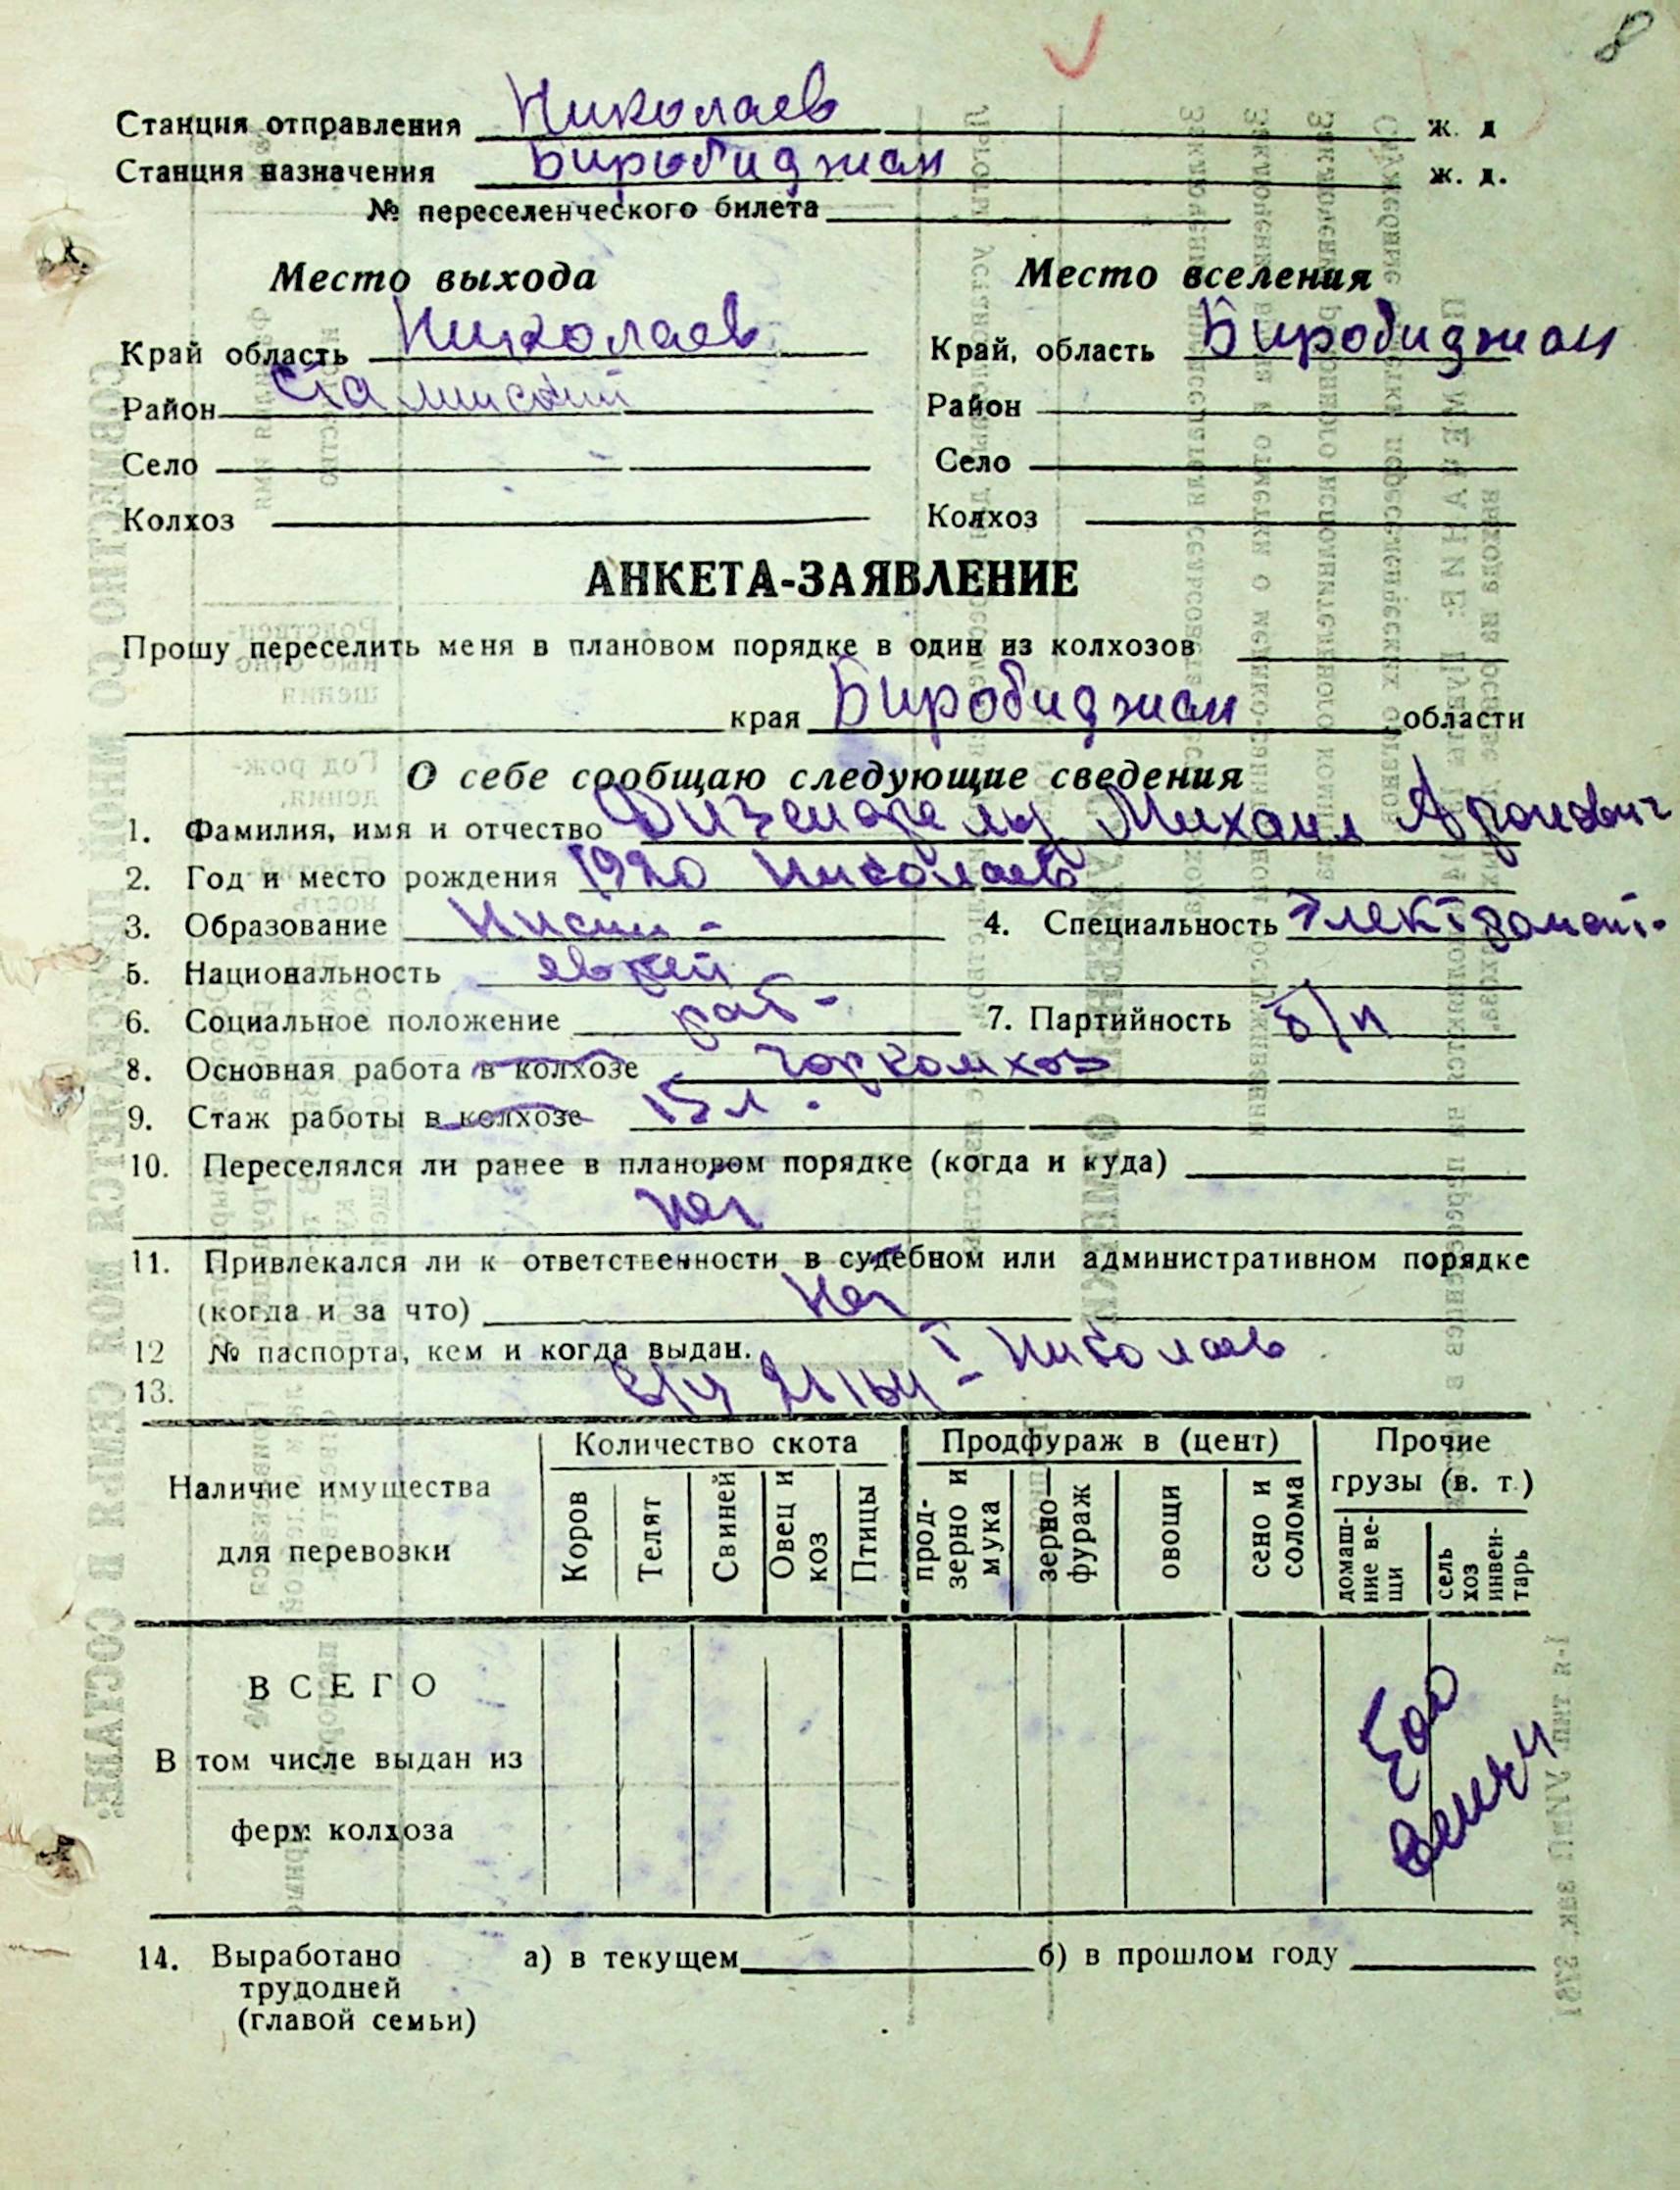 8
Станция отправления Николаев ж. д
Станция назначения Биробиджан ж. д.
№ переселенческого билета
Место выхода
Край область Николаев
Район Сталинский
Село
Колхоз
Место вселения
Край, область Биробиджан
Район
Село
Колхоз
АНКЕТА-ЗАЯВЛЕНИЕ
Прошу переселить меня в плановом порядке в один из колхозов
края Биробиджан области
О себе сообщаю следующие сведения
1. Фамилия, имя и отчество Михаил Аронович
2. Год и место рождения 1920 Николаев
3. Образование Низш - 4. Специальность Электромонт.
5. Национальность еврей
6. Социальное положение раб - 7. Партийность б/п
8. Основная работа в колхозе горкомхоз
9. Стаж работы в колхозе 15 л.
10. Переселялся ли ранее в плановом порядке (когда и куда)
Нет
11. Привлекался ли к ответственности в судебном или административном порядке
(когда и за что) Нет
12 № паспорта, кем и когда выдан. Николаев
13.
Наличие имущества
для перевозки
Количество скота
Коров
Телят
Свиней
Овец и коз
Птицы
Продфураж в (цент)
прод-зерно и мука
зерно-фураж
овощи
сено и солома
Прочие
грузы (в. т.)
домаш-ние ве-щи
сель хоз инвен-тарь
ВСЕГО
В том числе выдан из
ферм колхоза
14. Выработано а) в текущем б) в прошлом году
трудодней
(главой семьи)